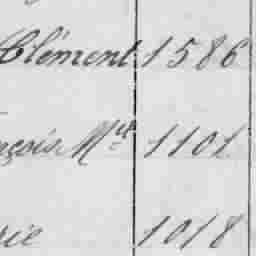 Clément 1586
nçois Mie 1101
rie 1018